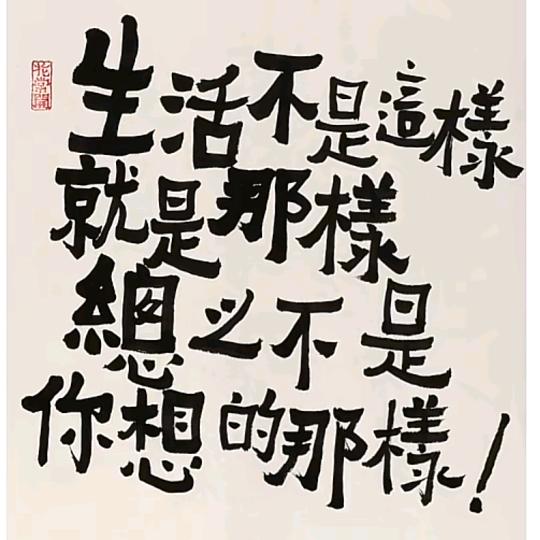 生活不是這樣
就是那樣
總之不是
你想的那樣!